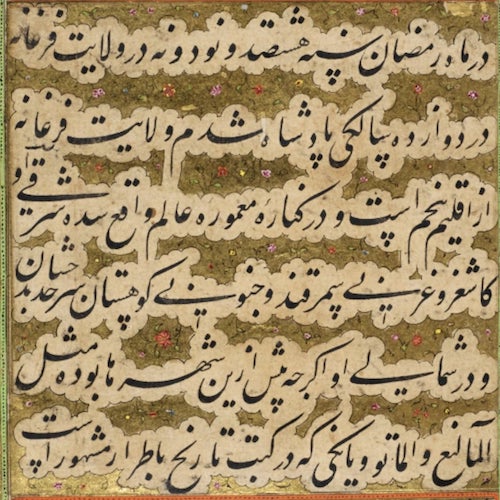 در ماه رمضان سنه هشتصد و نود و نه در ولایت فرغانه
در دوازده سالکی پادشاه شدم ولایت فرغانه
از اقلیم پنجم است و در کنارهٔ معموره عالم واقع شده شرقی او
کاشغر و غربی سمرقند و جنوبی کوهستان سرحد بدخشان
و در شمالی او اکرچه پیش ازین شهرها بوده مثل
المالیغ و الماتو و یانکی که در کتب تاریخ باطرار مشهور است